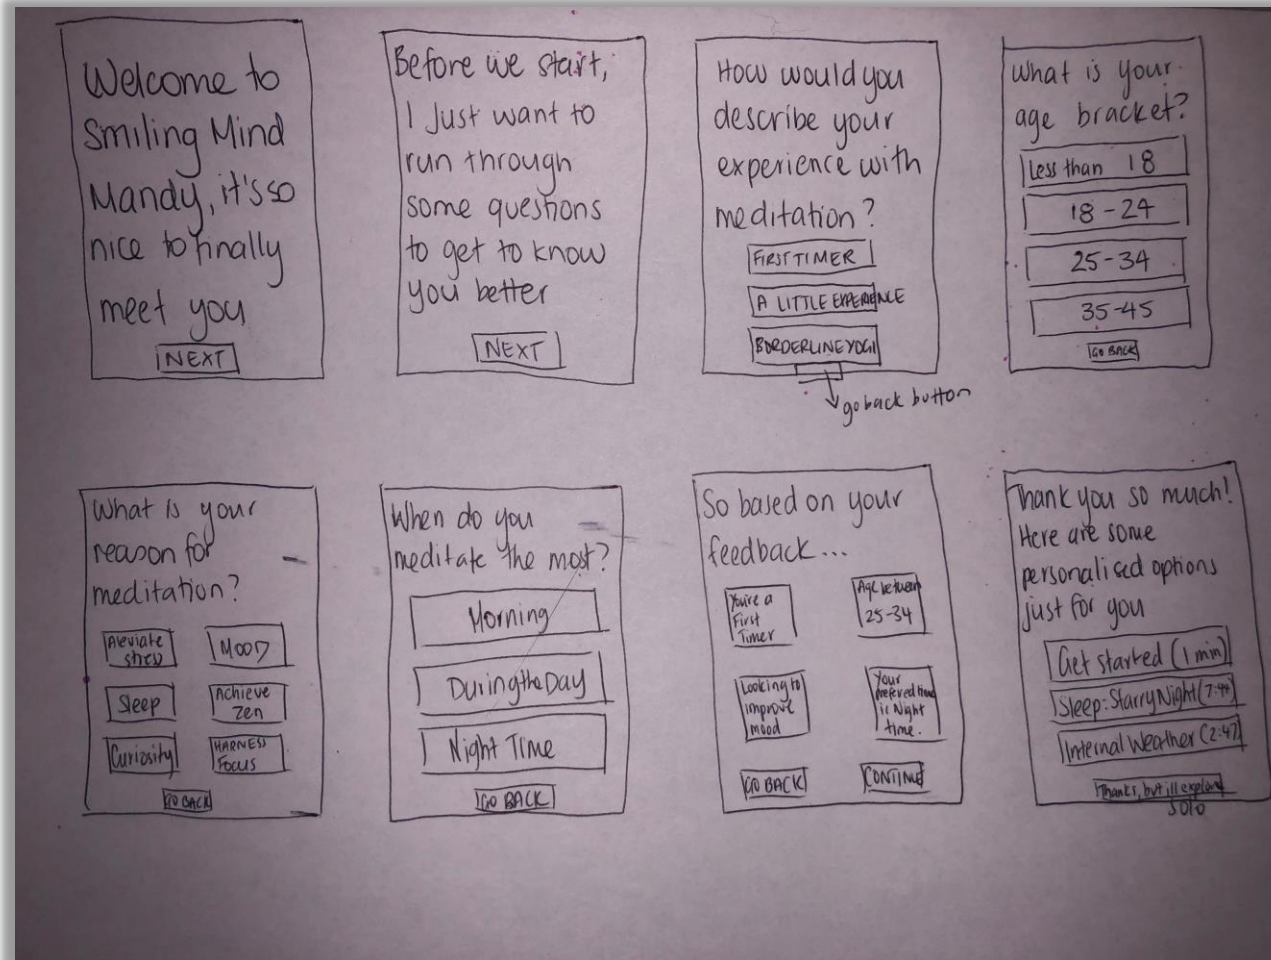 Welcome to
Smiling Mind
Mandy, it's so
nice to finally
meet you
NEXT
Before we start,
I Just want to
run through
some questions
to get to know
you better
NEXT
How would you
describe your
experience with
meditation?
FIRST TIMER
A LITTLE EXPERIENCE
BORDERLINE YOGI
go back button
What is your
age bracket?
Less than 18
18-24
25-34
35-45
GO BACK
What is your
reason for
meditation?
Aleviate
stress
MOOD
Sleep
Achieve
Zen
Curiosity
HARNESS
Focus
GO BACK
When do you
meditate the most?
Morning
During the Day
Night Time
GO BACK
So based on your
feedback...
You're a
First
Timer
Age between
25-34
Looking to
improve
mood
Your
prefered time
is Night
time.
GO BACK
CONTINUE
Thank you so much!
Here are some
personalised options
just for you
Get started (1 min)
Sleep: Starry Night (7:44)
Internal Weather (2:47)
Thanks, but ill explore
solo